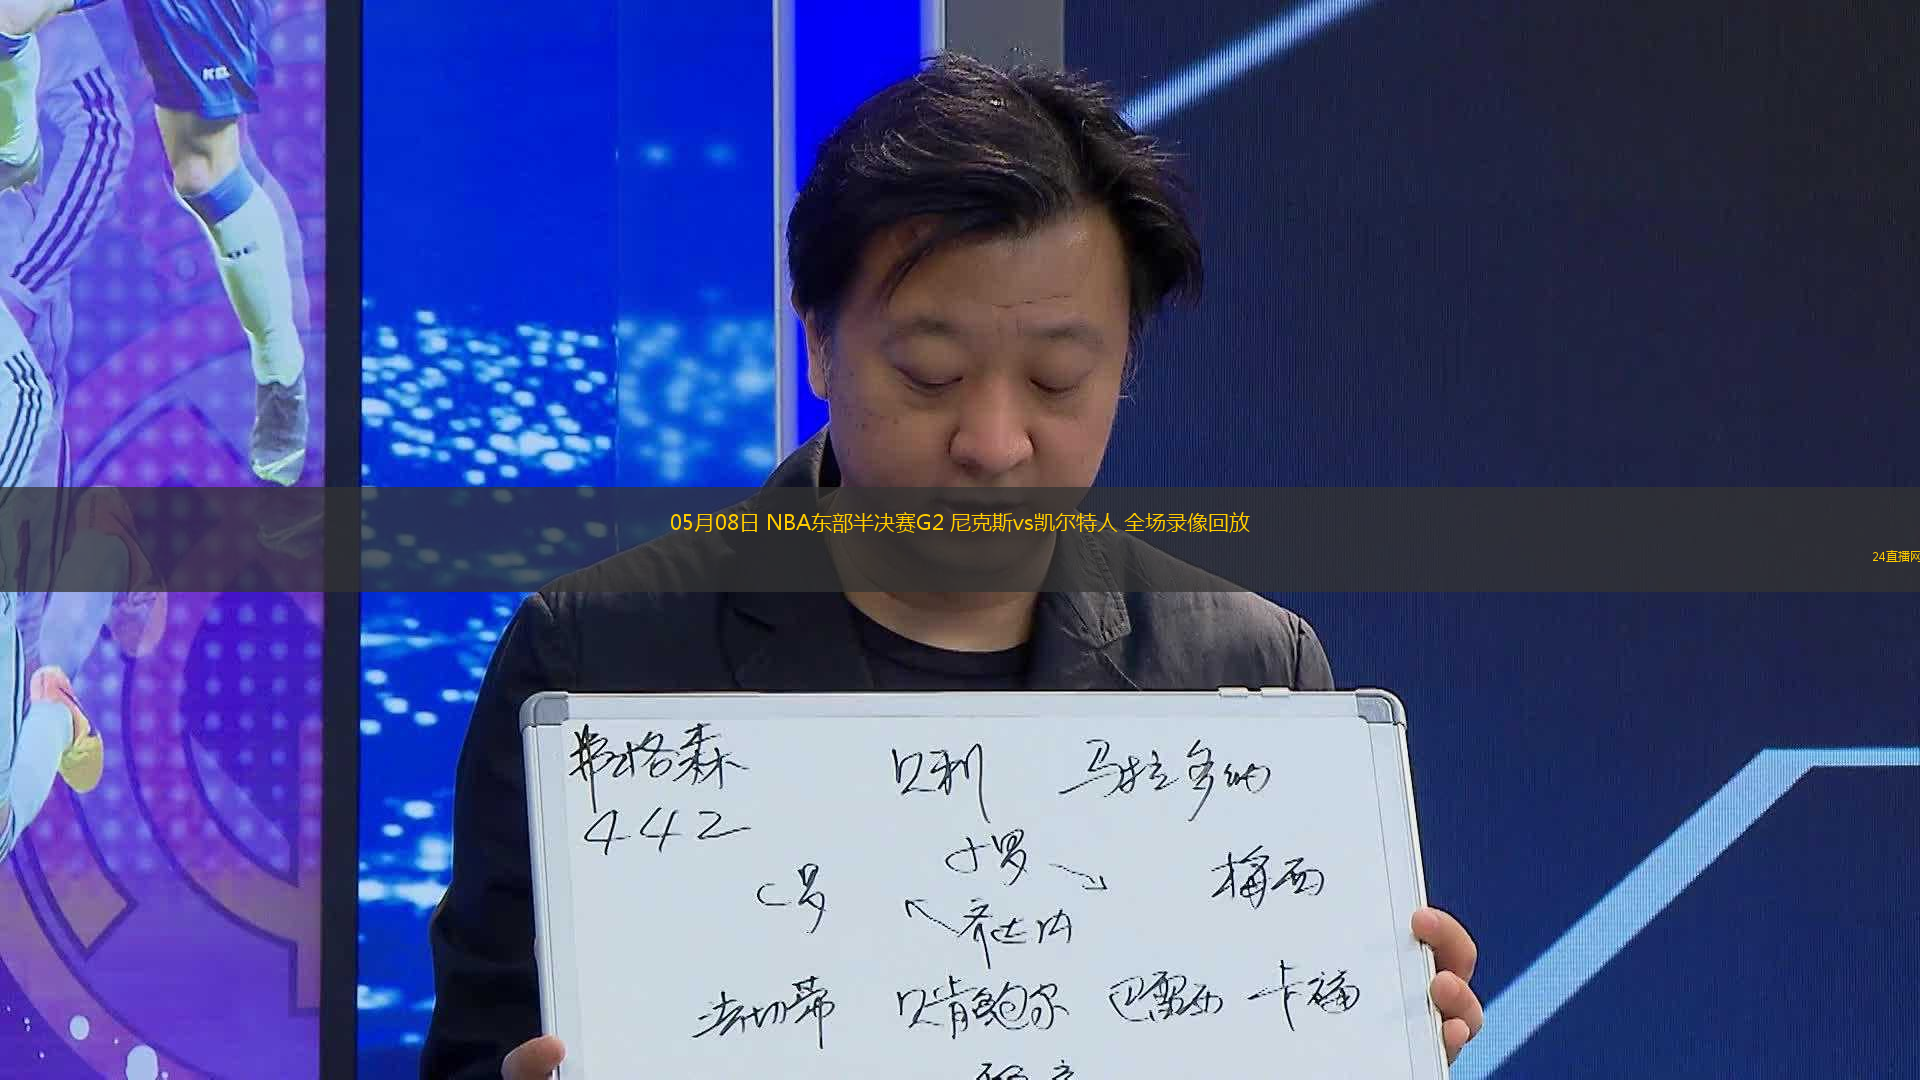 KEL
05月08日 NBA东部半决赛G2 尼克斯vs凯尔特人 全场录像回放
24直播网
弗格森 贝利 马拉多纳
442
小罗
C罗 梅西
齐达内
法切蒂 贝肯鲍尔 巴雷西 卡福